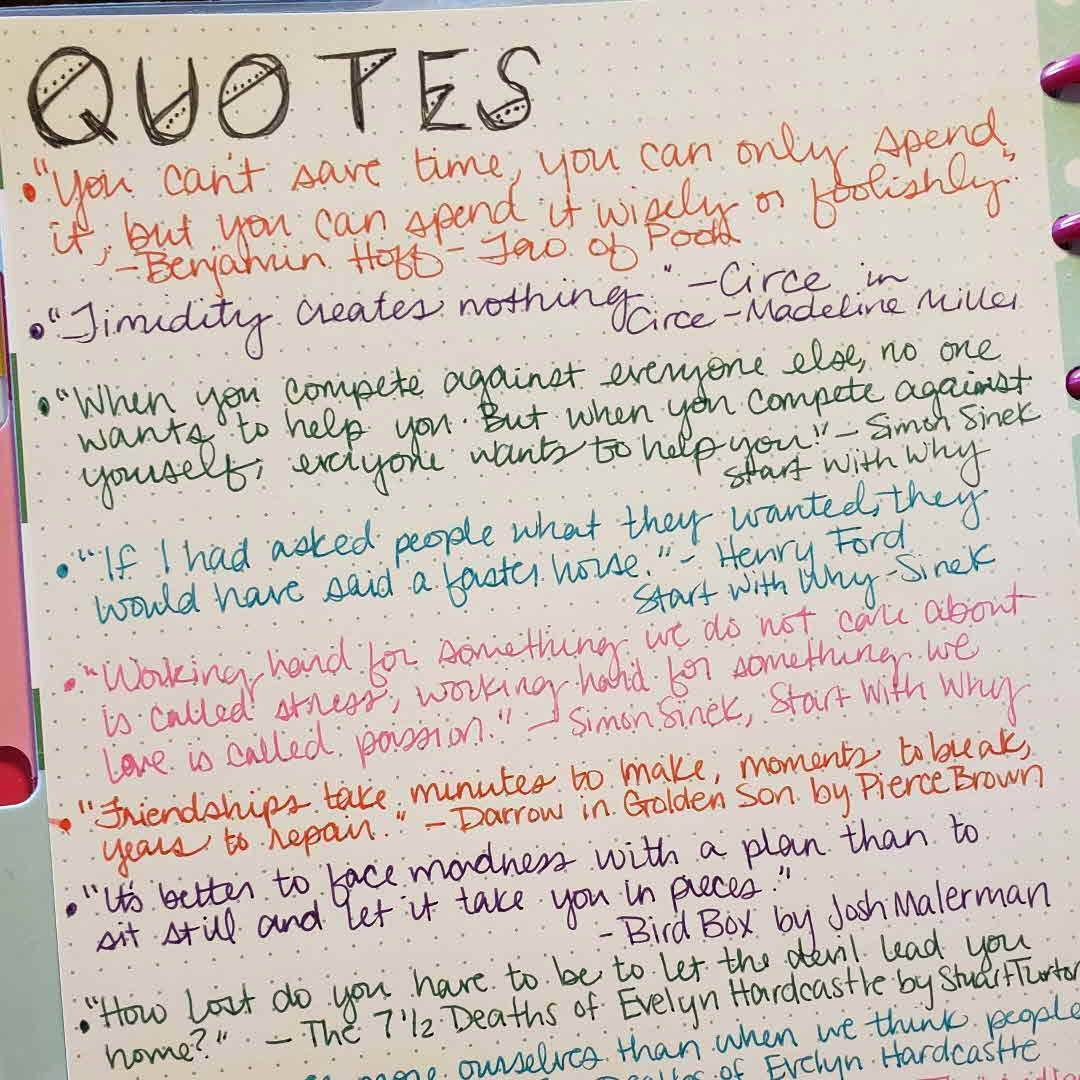 QUOTES
"You can't save time, you can only spend
it, but you can spend it wisely or foolishly"
-Benjamin Hoff - Tao of Pooh
"Timidity creates nothing." -Circe in
Circe - Madeline Miller
"When you compete against everyone else, no one
wants to help you. But when you compete against
yourself, everyone wants to help you" - Simon Sinek
Start With Why
"If I had asked people what they wanted, they
would have said a faster horse." - Henry Ford
Start With Why - Sinek
"Working hard for something we do not care about
is called stress, working hard for something we
love is called passion." - Simon Sinek, Start With Why
"Friendships take minutes to make, moments to break,
years to repair." - Darrow in Golden Son by Pierce Brown
"It's better to face madness with a plan than to
sit still and let it take you in pieces."
- Bird Box by Josh Malerman
"How lost do you have to be to let the devil lead you
home?" - The 7 1/2 Deaths of Evelyn Hardcastle by Stuart Turton
ourselves than when we think people
Deaths of Evelyn Hardcastle